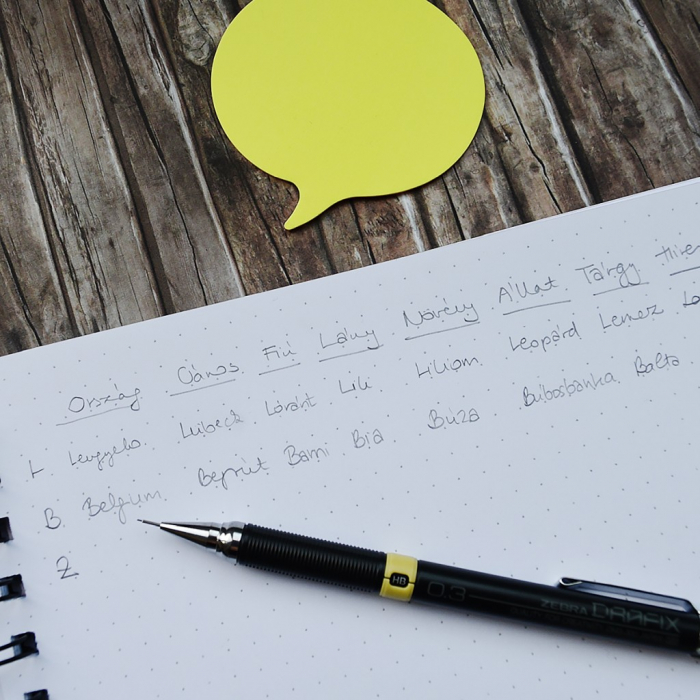 Ország Város Fiú Lány Növény Állat Tárgy Híres
L Lengyelo. Lübeck Lóránt Lili Liliom Leopárd Lemez
B Belgium Bejrút Barni Bia Búza Búbosbanka Balta
Z
HB 0.3 ZEBRA DRAFIX